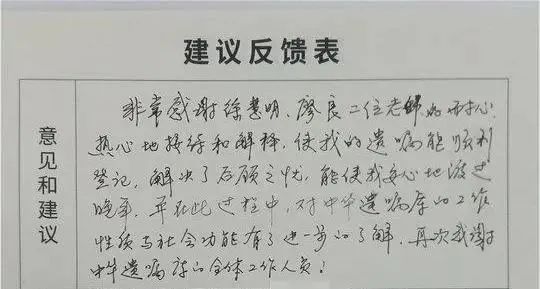 建议反馈表
意见和建议
非常感谢徐慧明、廖良二位老师的耐心
热心地接待和解释,使我的遗嘱能顺利
登记,解决了后顾之忧,能使我安心地渡过
晚年,并在此过程中,对中华遗嘱库的工作
性质与社会功能有了进一步的了解,再次感谢
中华遗嘱库的全体工作人员!